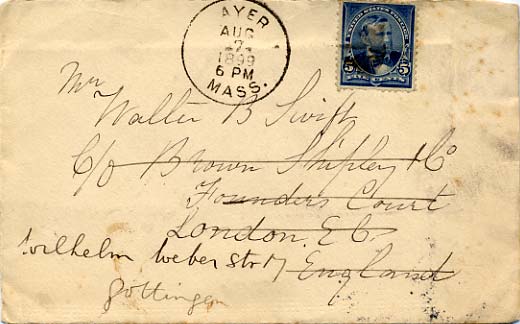 AYER
AUG
2
1899
6 PM
MASS.
5 5
Mr
Walter B Swift
C/o Brown Shipley & Co
Founders Court
London. E C.
England
Wilhelm Weber str 17
Göttingen